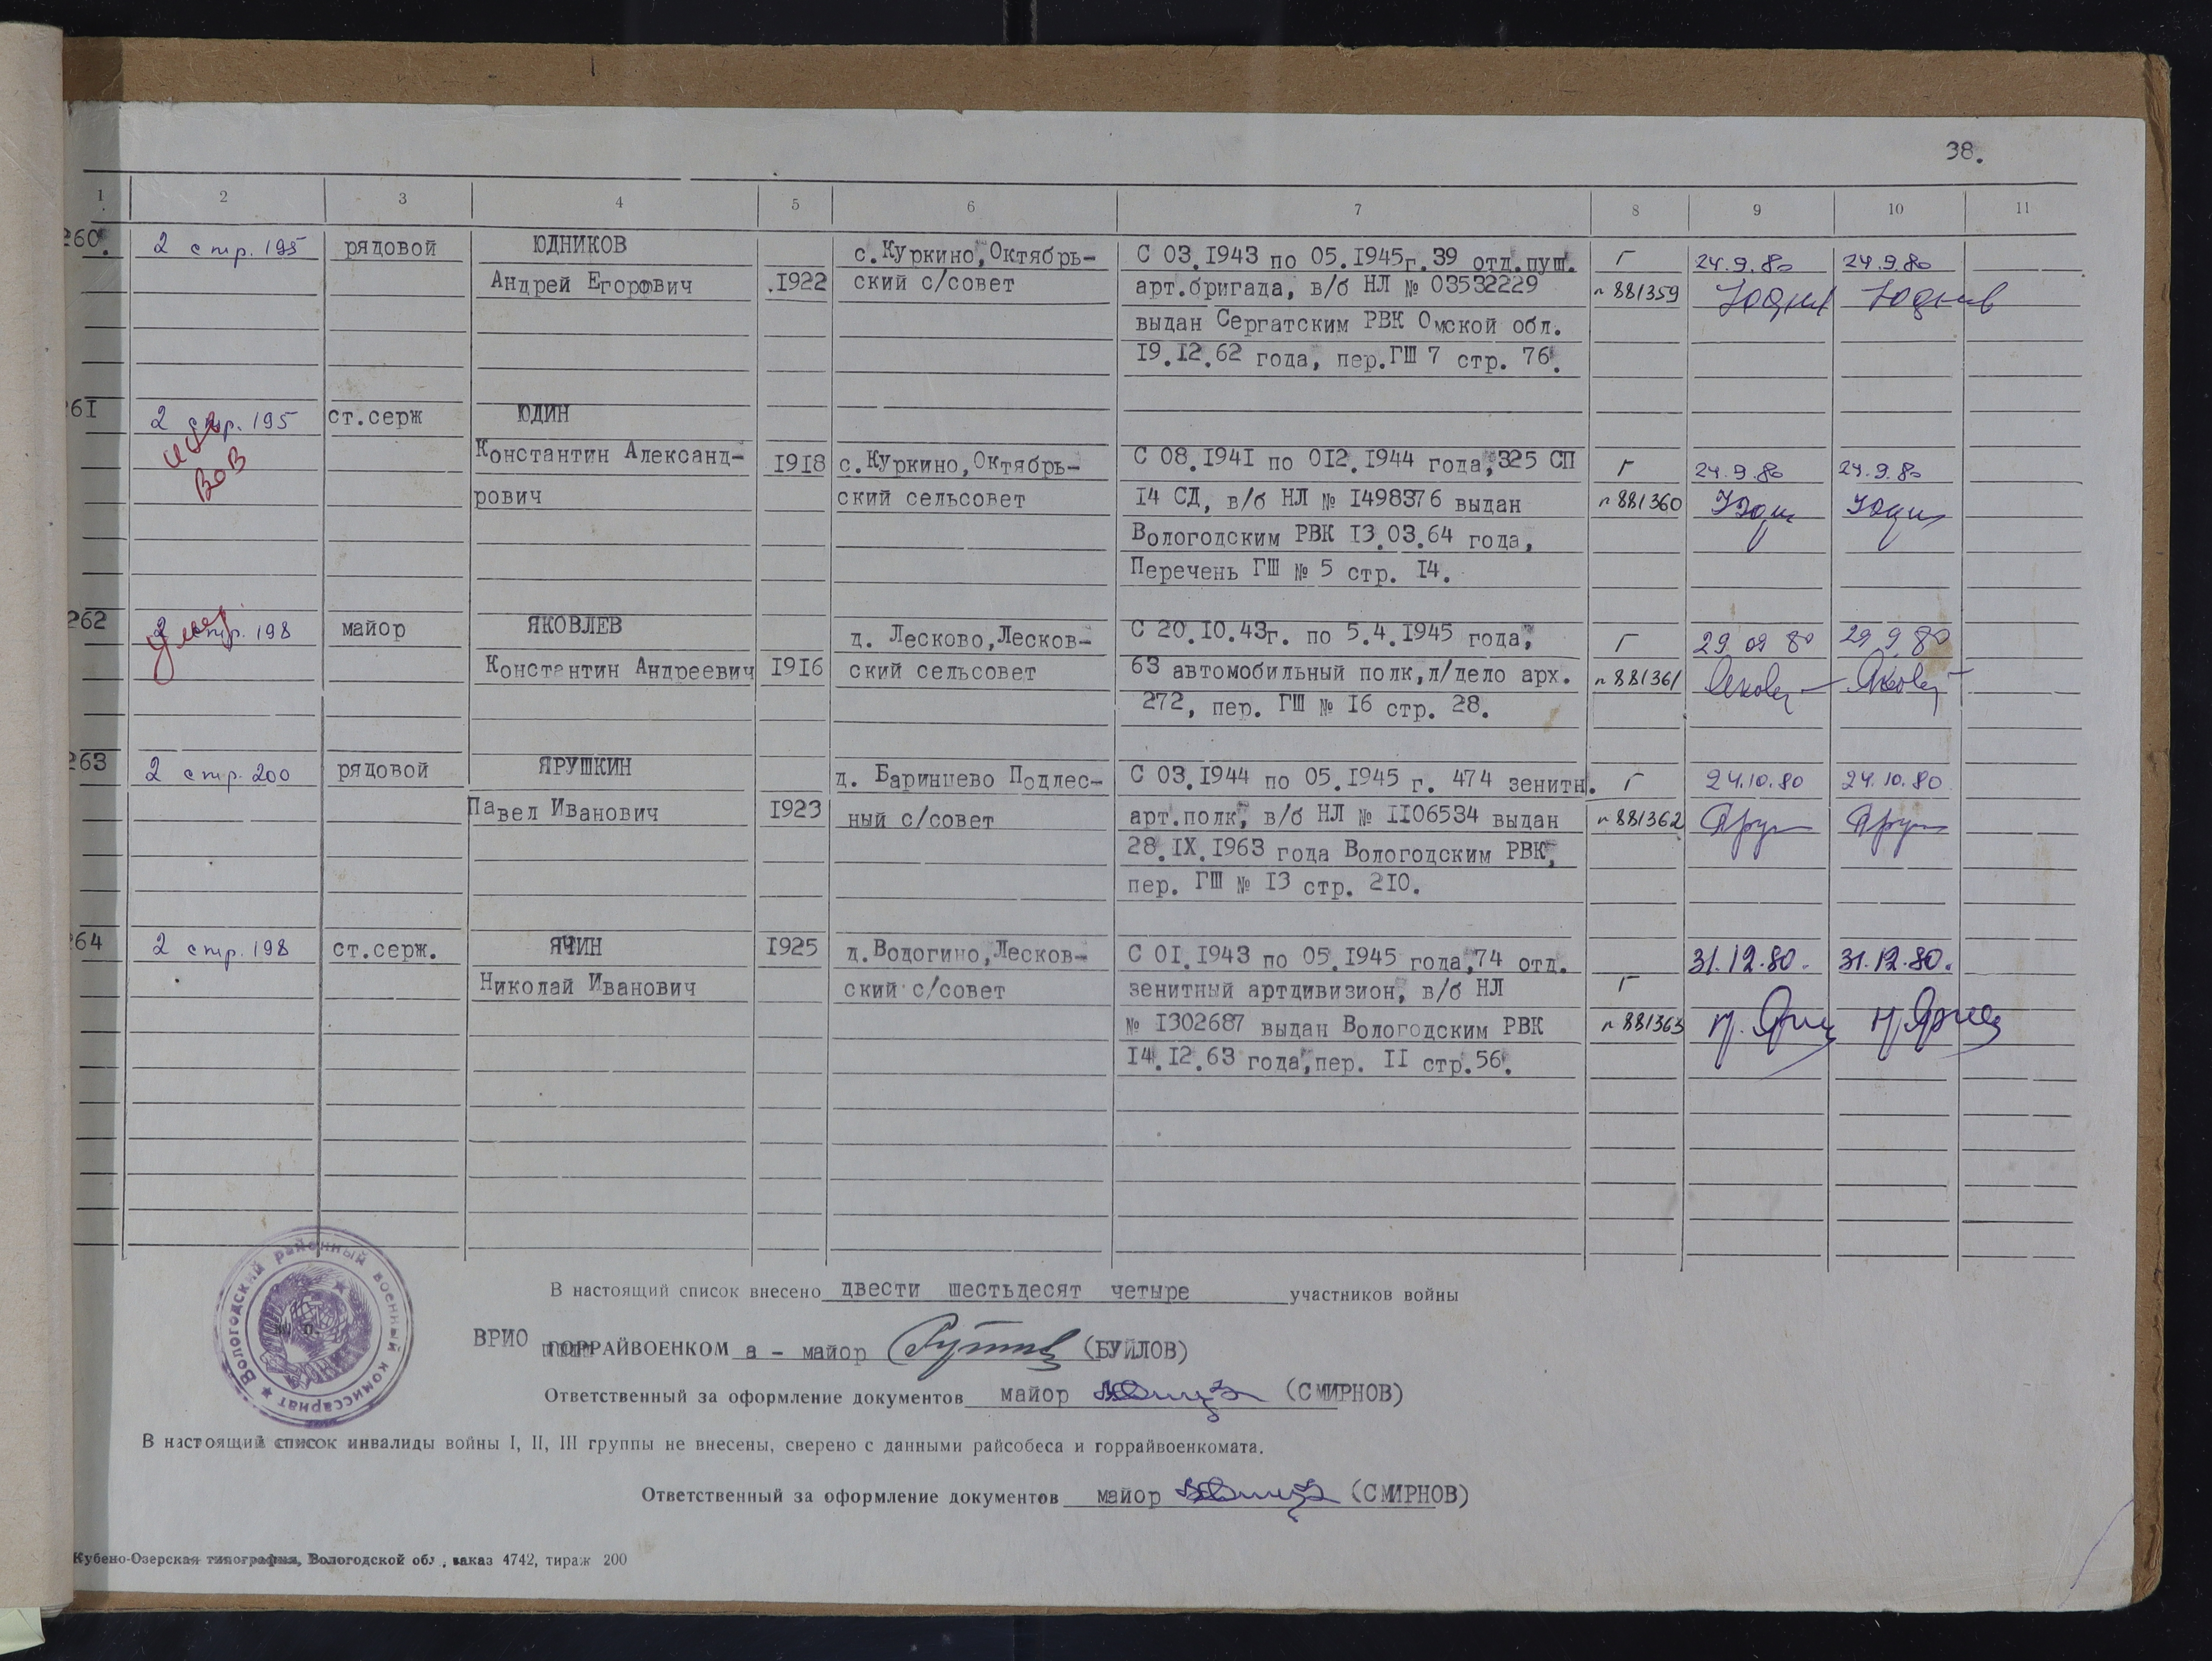 38.
1 2 3 4 5 6 7 8 9 10 11
260. 2 стр. 195 рядовой ЮДНИКОВ с.Куркино,Октябрь- С 03.1943 по 05.1945г.39 отд.пуш. Г 24.9.80 24.9.80
Андрей Егорович .1922 ский с/совет арт.бригада, в/б НЛ № 03532229 п 881359
выдан Сергатским РВК Омской обл.
19.12.62 года, пер.ГШ 7 стр. 76.
61 2 стр. 195 ст.серж ЮДИН
инв
ВОВ
Константин Александ- 1918 с.Куркино,Октябрь- С 08.1941 по 012.1944 года,325 СП Г 24.9.80 24.9.80
рович ский сельсовет 14 СД, в/б НЛ № 1498376 выдан п 881360 Юдин Юдин
Вологодским РВК 13.03.64 года,
Перечень ГШ № 5 стр. 14.
262 2 стр. 198 майор ЯКОВЛЕВ д. Лесково,Лесков- С 20.10.43г. по 5.4.1945 года, Г 29 09 80 29.9.80
умер
Константин Андреевич 1916 ский сельсовет 63 автомобильный полк,л/дело арх. п 881361
272, пер. ГШ № 16 стр. 28.
263 2 стр. 200 рядовой ЯРУШКИН д. Баринцево Подлес- С 03.1944 по 05.1945 г. 474 зенитн. Г 24.10.80 24.10.80
Павел Иванович 1923 ный с/совет арт.полк, в/б НЛ № 1106534 выдан п 881362 Яруш Яруш
28.IX.1963 года Вологодским РВК,
пер. ГШ № 13 стр. 210.
64 2 стр. 198 ст.серж. ЯЧИН 1925 д.Водогино,Лесков- С 01.1943 по 05.1945 года,74 отд. 31.12.80. 31.12.80.
Николай Иванович ский с/совет зенитный артдивизион, в/б НЛ Г
№ 1302687 выдан Вологодским РВК п 881363
14.12.63 года,пер. II стр.56.
Вологодский районный военный комиссариат
М. П.
В настоящий список внесено двести шестьдесят четыре участников войны
ВРИО ГОРРАЙВОЕНКОМ а - майор (БУЙЛОВ)
Ответственный за оформление документов майор (СМИРНОВ)
В настоящий список инвалиды войны I, II, III группы не внесены, сверено с данными райсобеса и горрайвоенкомата.
Ответственный за оформление документов майор (СМИРНОВ)
Кубено-Озерская типография, Вологодской обл., заказ 4742, тираж 200